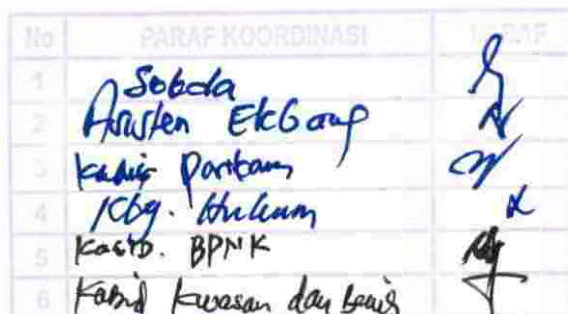 No PARAF KOORDINASI PARAF
1 Sekda
2 Asisten Ekbang
3 Kadis Pertam
4 Kbg. Hukum
5 BPNK
6 Kabid dan